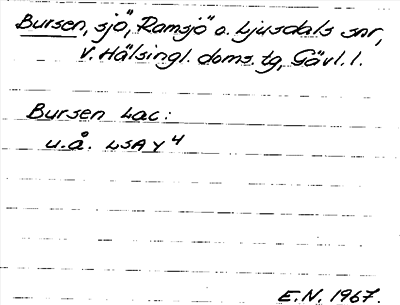 Bursen, sjö, Ramsjö o. Ljusdals snr,
V. Hälsingl. doms. tg, Gävl. l.
Bursen Lac:
u.å. LSA Y 4
E.N. 1967.